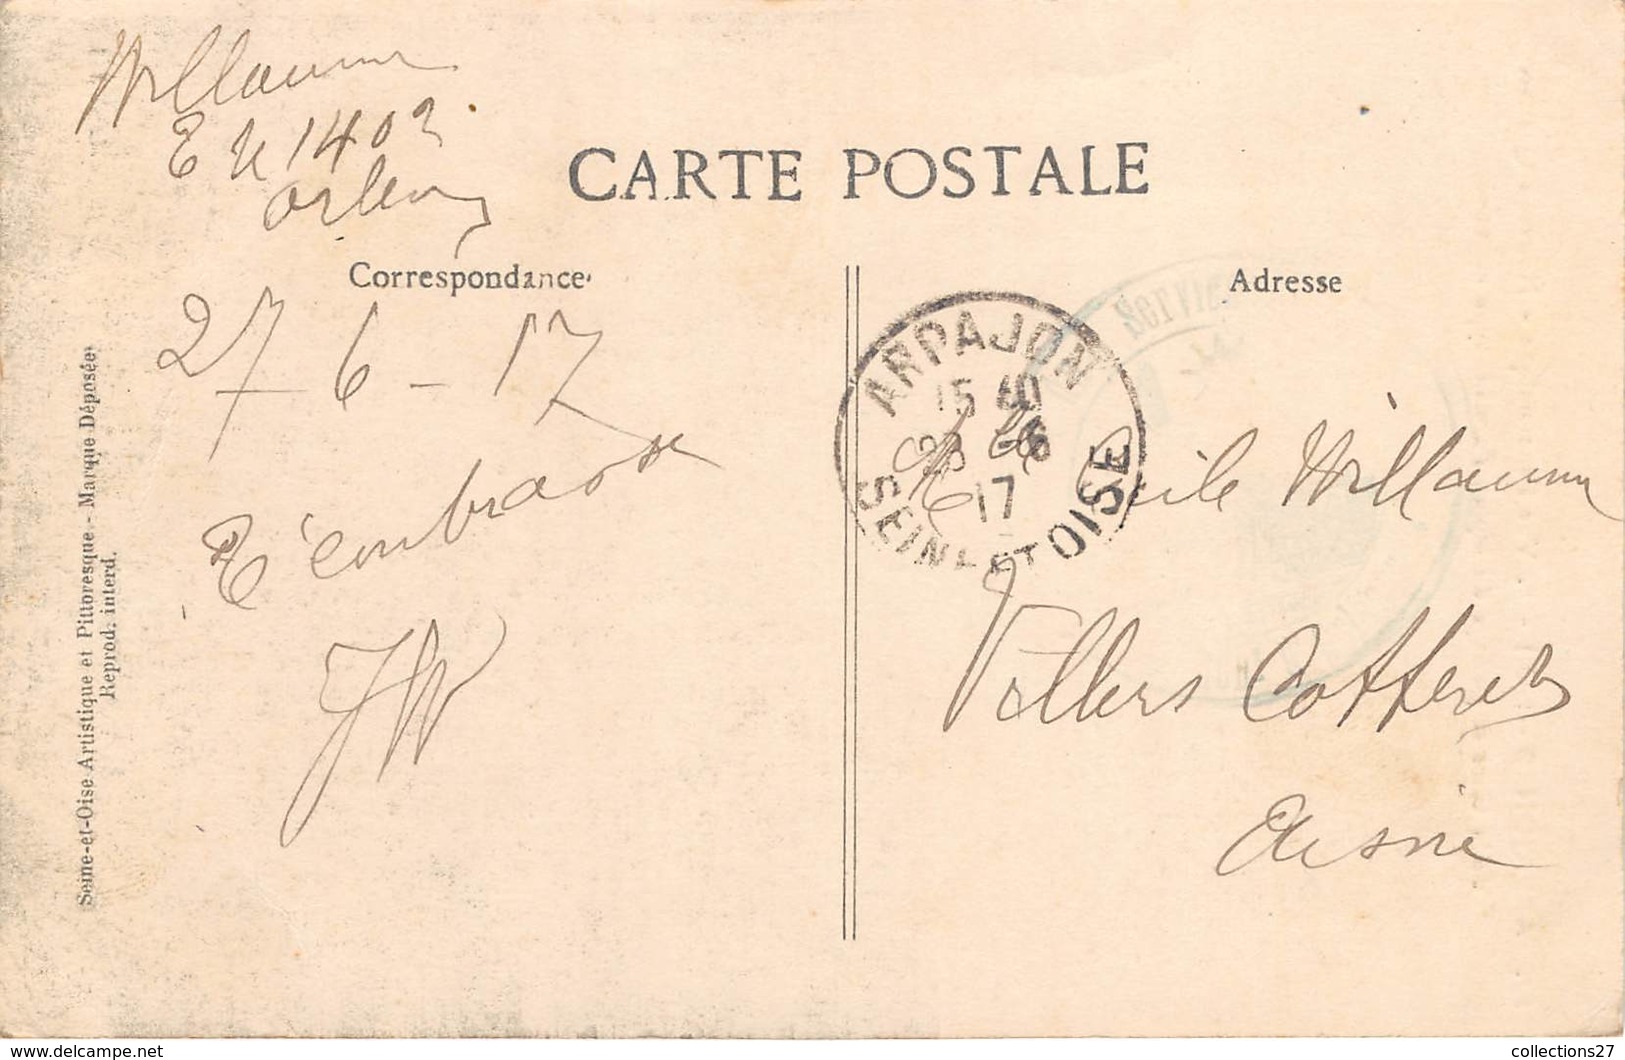 Willaume
1402
CARTE POSTALE
Correspondance
Adresse
27-6-17
T'embrasse
JW
Seine-et-Oise Artistique et Pittoresque - Marque Déposée
Reprod. interd.
ARPAJON
15 40
28 -6
17
SEINE-ET-OISE
Servic
Melle Cécile Willaume
Villers Cotterets
Aisne
delcampe.net
collections27